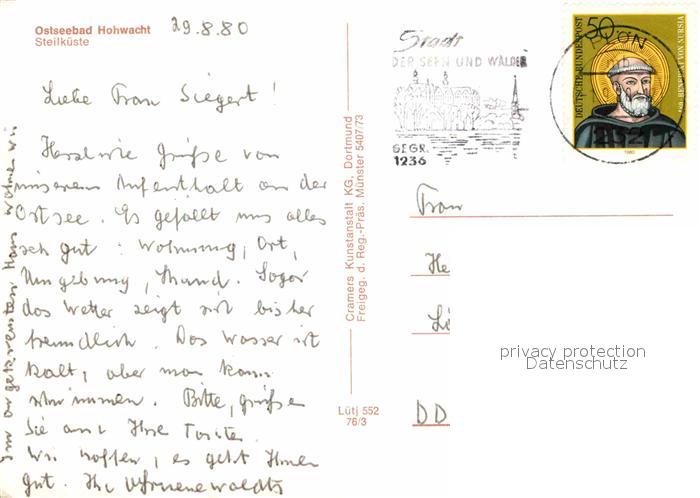 Ostseebad Hohwacht
Steilküste
29.8.80
Liebe Frau Siegert!
Herzliche Grüße von
unserem Aufenthalt an der
Ostsee. Es gefällt uns alles
sehr gut: Wohnung, Ort,
Umgebung, Strand. Sogar
das Wetter zeigt sich bisher
freundlich. Das Wasser ist
kalt, aber man kann
schwimmen. Bitte, grüßen
Sie auch Ihre Tochter.
Wir hoffen, es geht Ihnen
gut. Ihre
Im angekreuzten Haus wohnen wir
Cramers Kunstanstalt KG, Dortmund
Freigeg. d. Reg.-Präs. Münster 5407/73
Lütj 552
76/3
Stadt
DER SEEN UND WÄLDER
GEGR.
1236
PLÖN
50
DEUTSCHE BUNDESPOST
BENEDIKT VON NURSIA
1980
Frau
He
Li
DD
privacy protection
Datenschutz